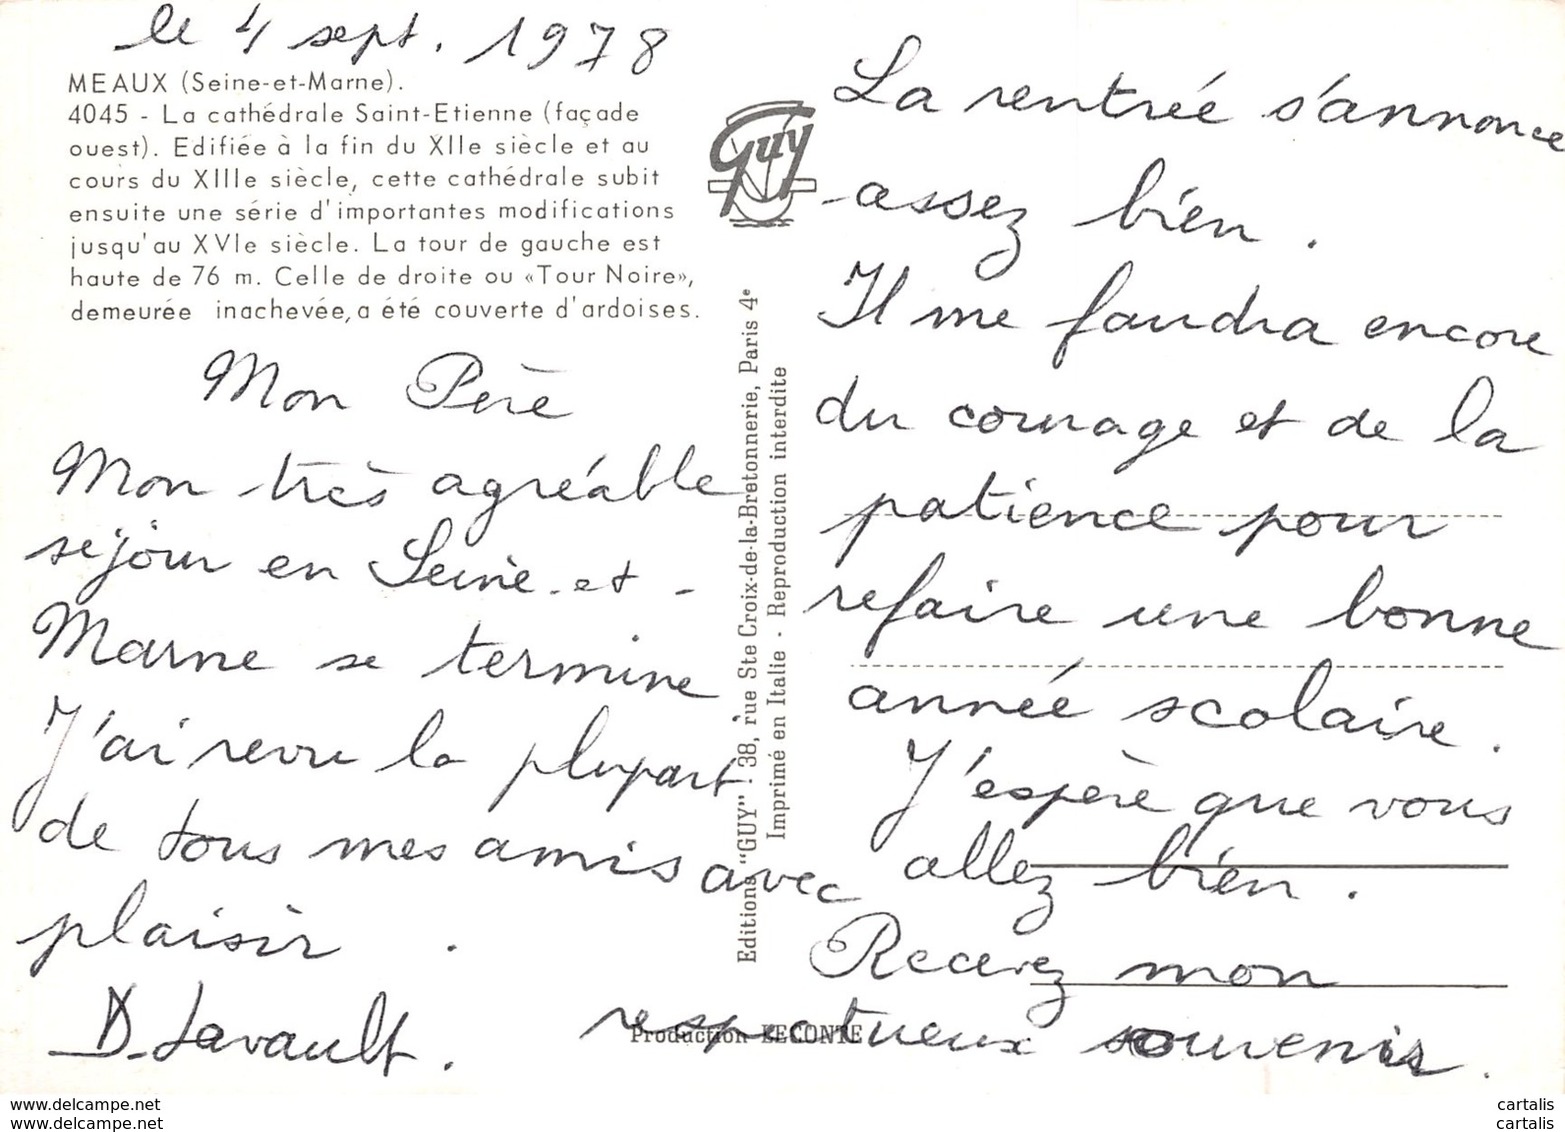 le 4 sept. 1978
MEAUX (Seine-et-Marne).
4045 - La cathédrale Saint-Etienne (façade
ouest). Edifiée à la fin du XIIe siècle et au
cours du XIIIe siècle, cette cathédrale subit
ensuite une série d'importantes modifications
jusqu'au XVIe siècle. La tour de gauche est
haute de 76 m. Celle de droite ou «Tour Noire»,
demeurée inachevée, a été couverte d'ardoises.
Mon Père
Mon très agréable
séjour en Seine-et-
Marne se termine
J'ai revu la plupart
de tous mes amis avec
plaisir.
D. Lavault.
Guy
Editions "GUY" . 38, rue Ste Croix-de-la-Bretonnerie, Paris 4e
Imprimé en Italie - Reproduction interdite
La rentrée s'annonce
assez bien.
Il me faudra encore
du courage et de la
patience pour
refaire une bonne
année scolaire.
J'espère que vous
allez bien.
Recevez mon
respectueux souvenir.
Production LECONTE
www.delcampe.net
www.delcampe.net
cartalis
cartalis